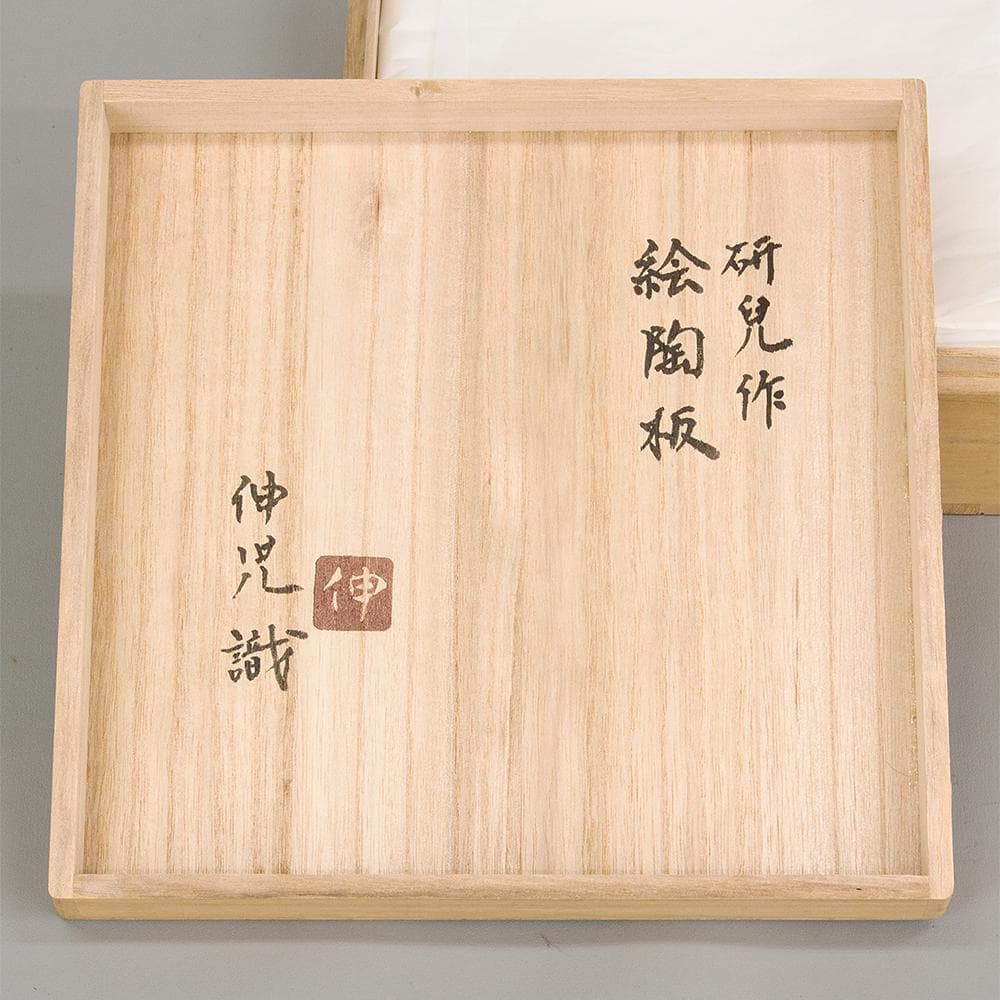 研兒作
絵陶板
伸
伸児識